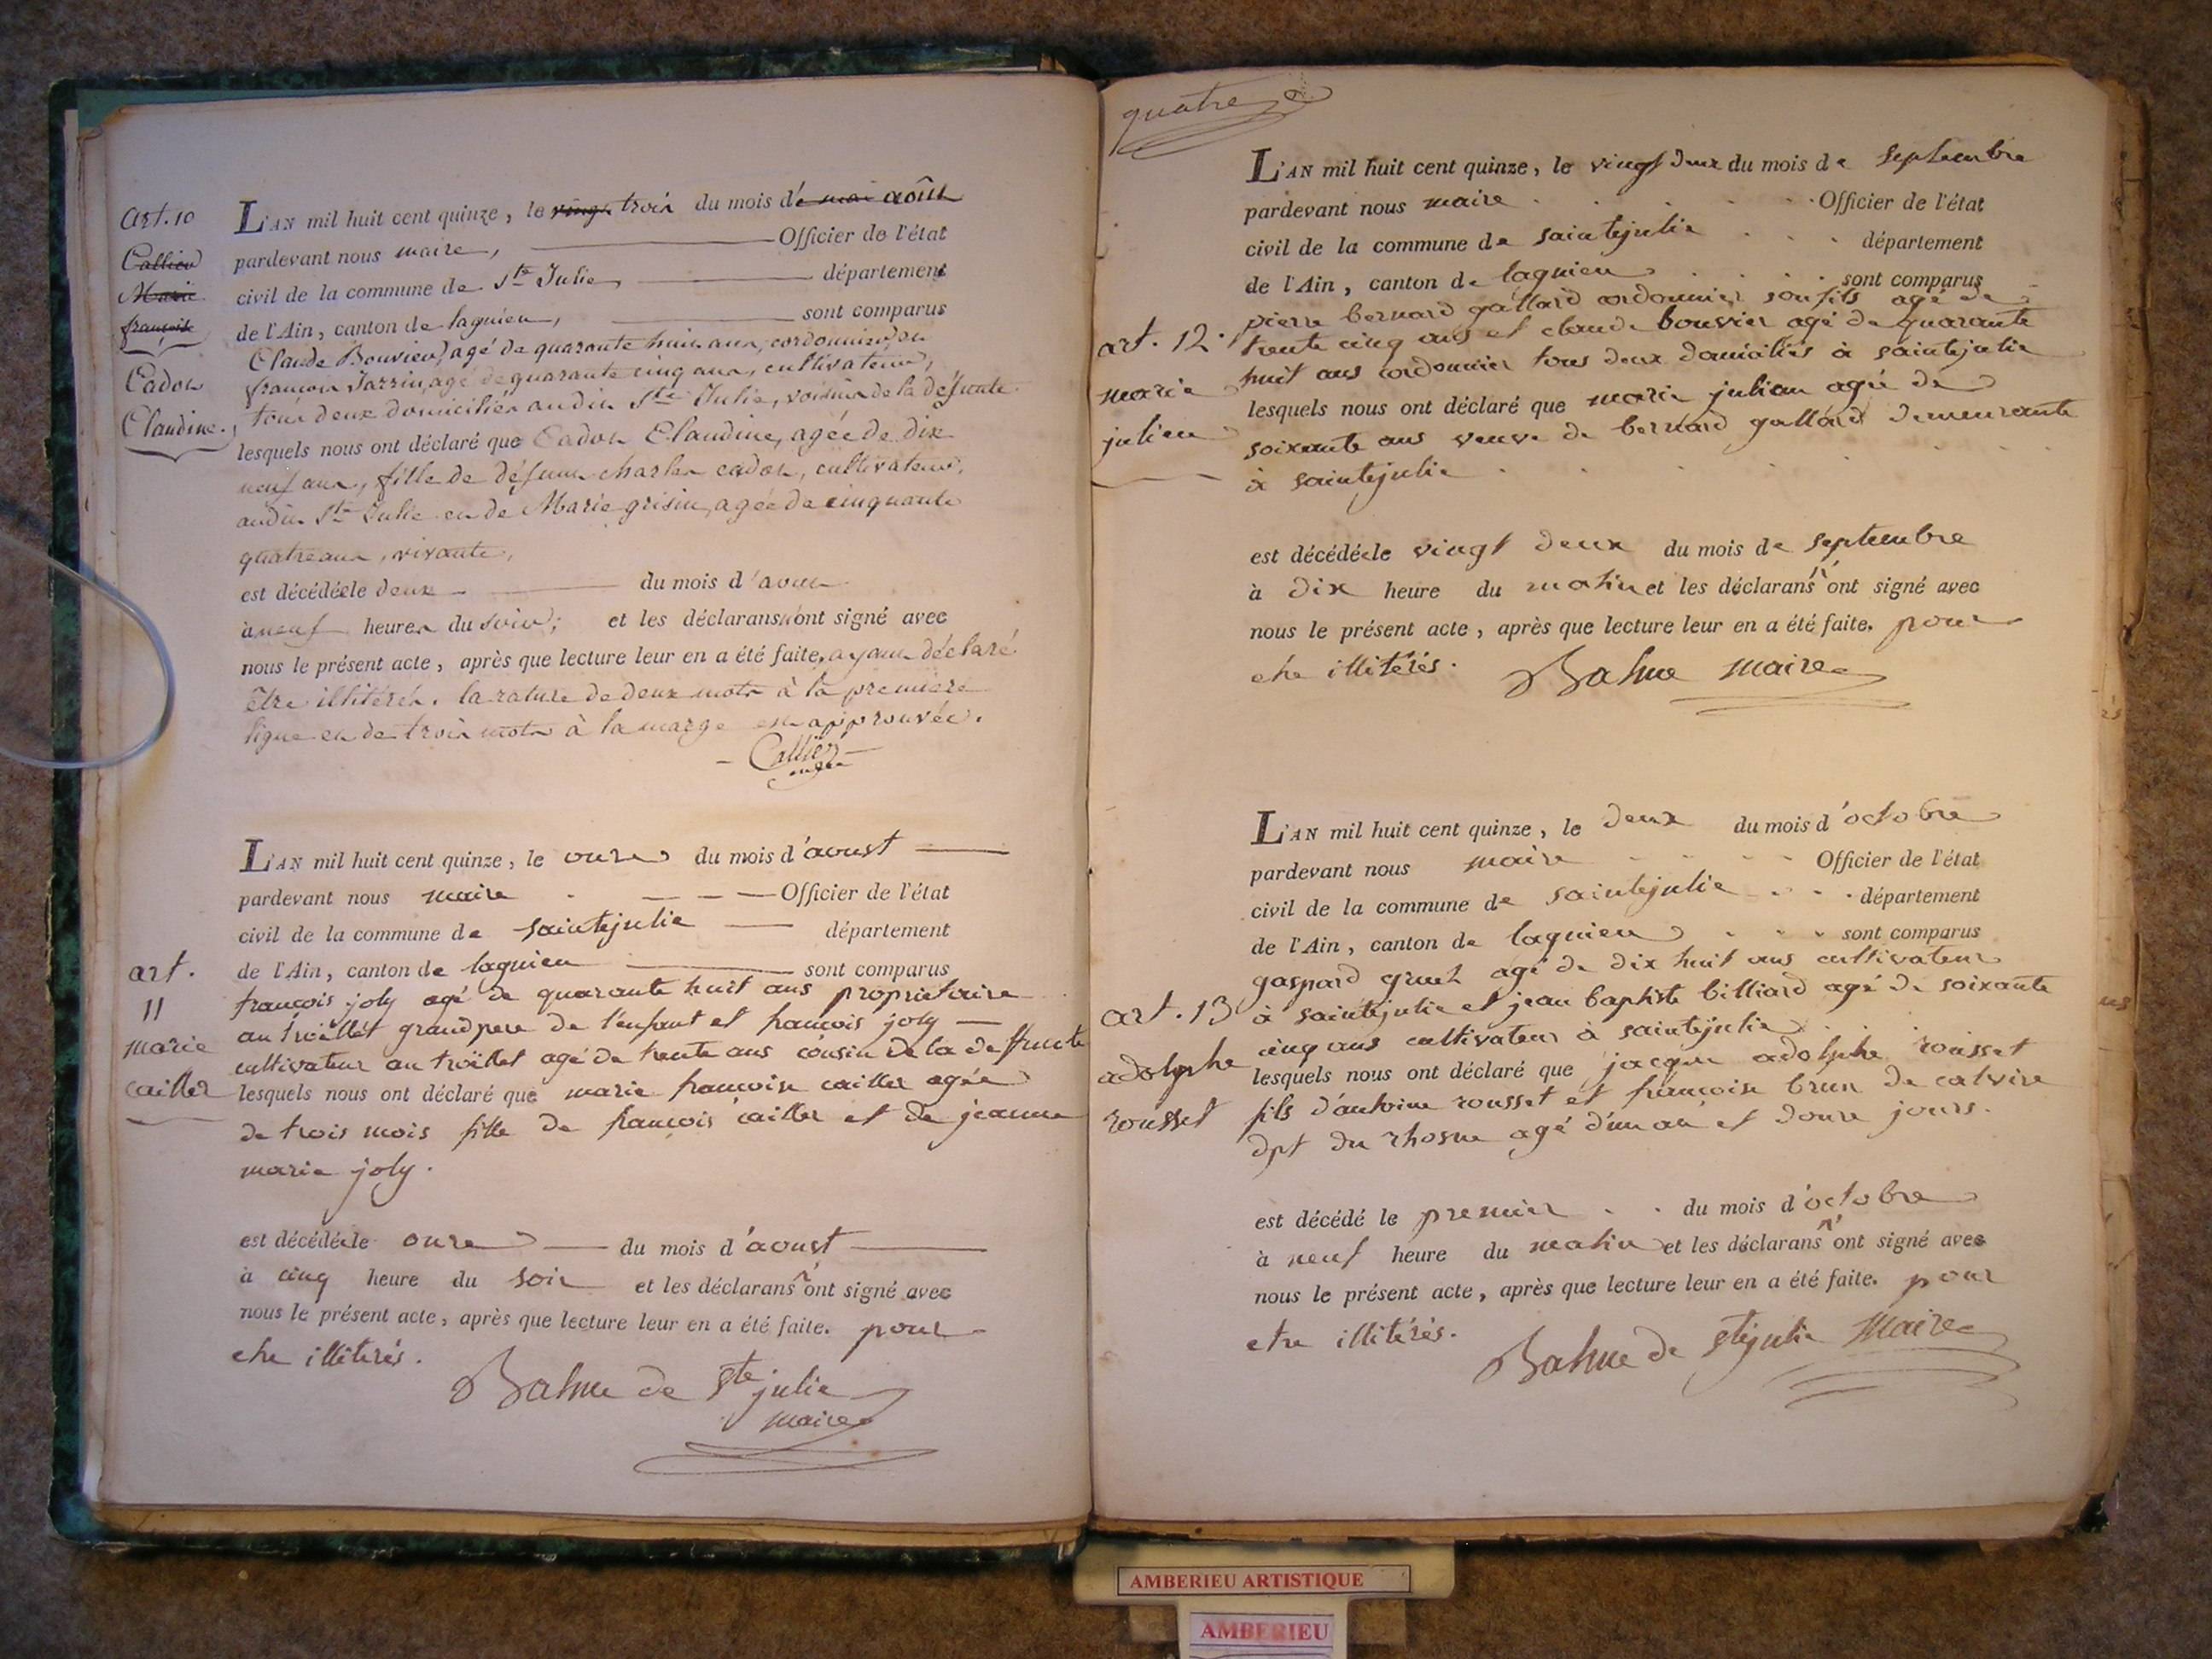 art. 10
Callier
Marie
françoise
Cadot
Claudine.
L'AN mil huit cent quinze, le vingt trois du mois de mai août
pardevant nous maire, Officier de l'état
civil de la commune de Ste Julie, département
de l'Ain, canton de lagnieu, sont comparus
Claude Bouvier, agé de quarante huit ans, cordonnier, et
françois Jarrin, agé de quarante cinq ans, cultivateur,
tous deux domiciliés audit Ste Julie, voisins de la défunte
lesquels nous ont déclaré que Cadot Claudine, agée de dix
neuf ans, fille de défunt charles cadot, cultivateur,
audit Ste Julie et de Marie grisin, agée de cinquante
quatre ans, vivante,
est décédée le deux du mois d'aout
à neuf heures du soir; et les déclarans n'ont signé avec
nous le présent acte, après que lecture leur en a été faite, ayant déclaré
être illitérés. la rature de deux mots à la première
ligne et de trois mots à la marge est approuvée.
Callier
art.
11
marie
cailler
L'AN mil huit cent quinze, le onze du mois d'aoust
pardevant nous maire Officier de l'état
civil de la commune de saintejulie département
de l'Ain, canton de lagnieu sont comparus
francois joly agé de quarante huit ans proprietaire
au troëllet grandpere de l'enfant et francois joly
cultivateur au troëllet agé de trente ans cousin de la deffunte
lesquels nous ont déclaré que marie francoise cailler agée
de trois mois fille de francois cailler et de jeanne
marie joly.
est décédée le onze du mois d'aoust
à cinq heure du soir et les déclarans n'ont signé avec
nous le présent acte, après que lecture leur en a été faite. pour
etre illitérés.
Balme de Ste julie
maire
quatre
L'AN mil huit cent quinze, le vingt deux du mois de septembre
pardevant nous maire Officier de l'état
civil de la commune de saintejulie département
de l'Ain, canton de lagnieu sont comparus
pierre bernard gallard cordonnier son fils agé de
art. 12.
marie
julien
trente cinq ans et claude bouvier agé de quarante
huit ans cordonnier tous deux domiciliés à saintejulie
lesquels nous ont déclaré que marie julien agée de
soixante ans veuve de bernard gallard demeurante
à saintejulie
est décédée le vingt deux du mois de septembre
à dix heure du matin et les déclarans n'ont signé avec
nous le présent acte, après que lecture leur en a été faite. pour
etre illitérés. Balme maire
L'AN mil huit cent quinze, le deux du mois d'octobre
pardevant nous maire Officier de l'état
civil de la commune de saintejulie département
de l'Ain, canton de lagnieu sont comparus
gaspard gruet agé de dix huit ans cultivateur
art. 13
adolphe
rousset
à saintejulie et jean baptiste billiard agé de soixante
cinq ans cultivateur à saintejulie
lesquels nous ont déclaré que jacque adolphe rousset
fils d'antoine rousset et francoise brun de calvire
dpt du rhosne agé d'un an et douze jours.
est décédé le premier du mois d'octobre
à neuf heure du matin et les déclarans n'ont signé avec
nous le présent acte, après que lecture leur en a été faite. pour
etre illitérés. Balme de stejulie Maire
AMBERIEU ARTISTIQUE
AMBERIEU